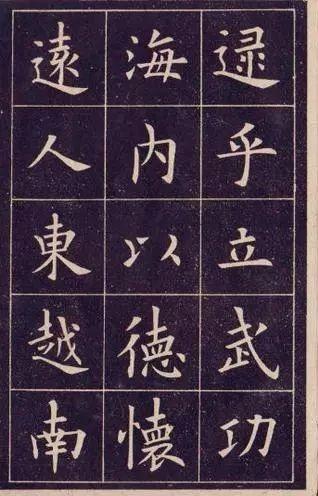 逯乎立武功
海内以德懷
遠人東越南